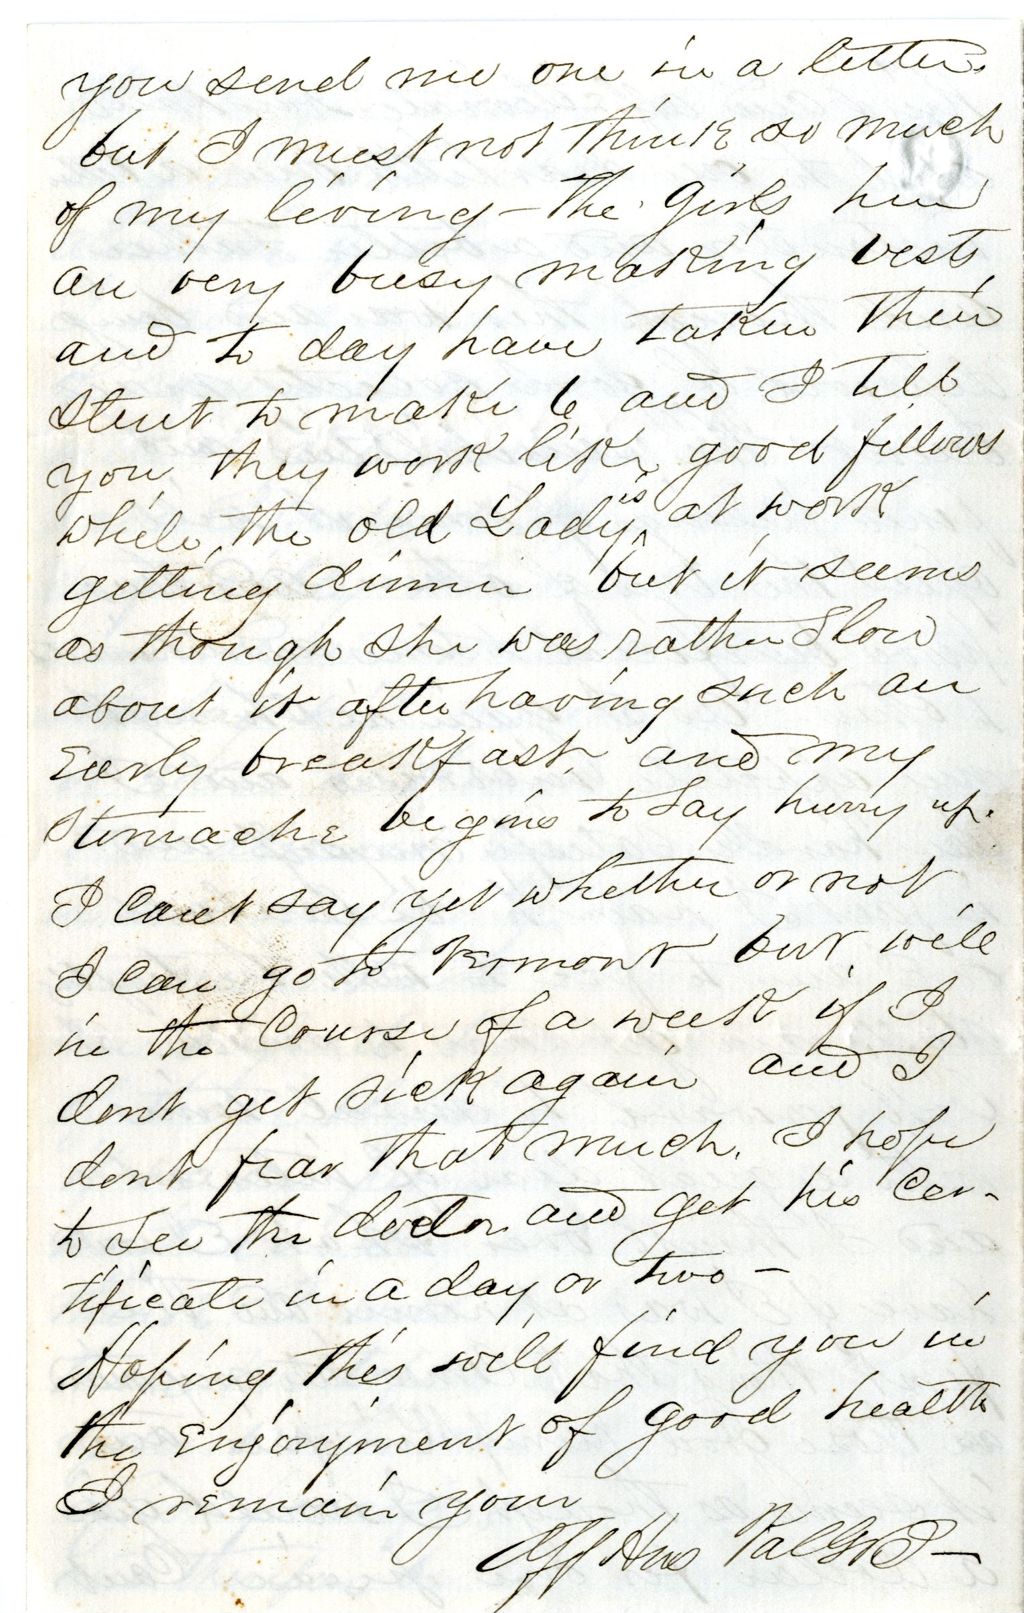 you send me one in a letter.
but I must not think so much
of my living – the girls here
are very busy making vests,
and to day have taken their
stent to make 6 and I tell
you they work like good fellows
while, the old Lady is at work
getting dinner but it seems
as though she was rather Slow
about it after having such an
Early breakfast, and my
stomache begins to Say hurry up.
I cant say yet whether or not
I can go to Vermont but will
in the Course of a week if I
dont get sick again and I
dont fear that much. I hope
to see the doctor and get his Cer-
tificate in a day or two –
Hoping this will find you in
the Enjoyment of good health
I remain your
Aff Hus